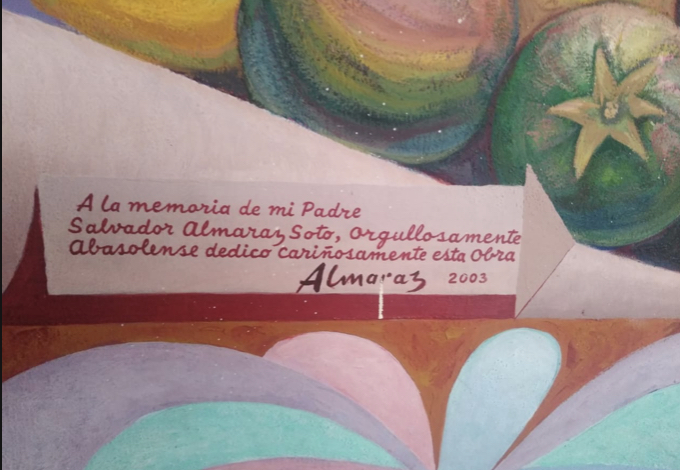 A la memoria de mi Padre
Salvador Almaraz Soto, Orgullosamente
Abasolense dedico Cariñosamente esta Obra
Almaraz 2003